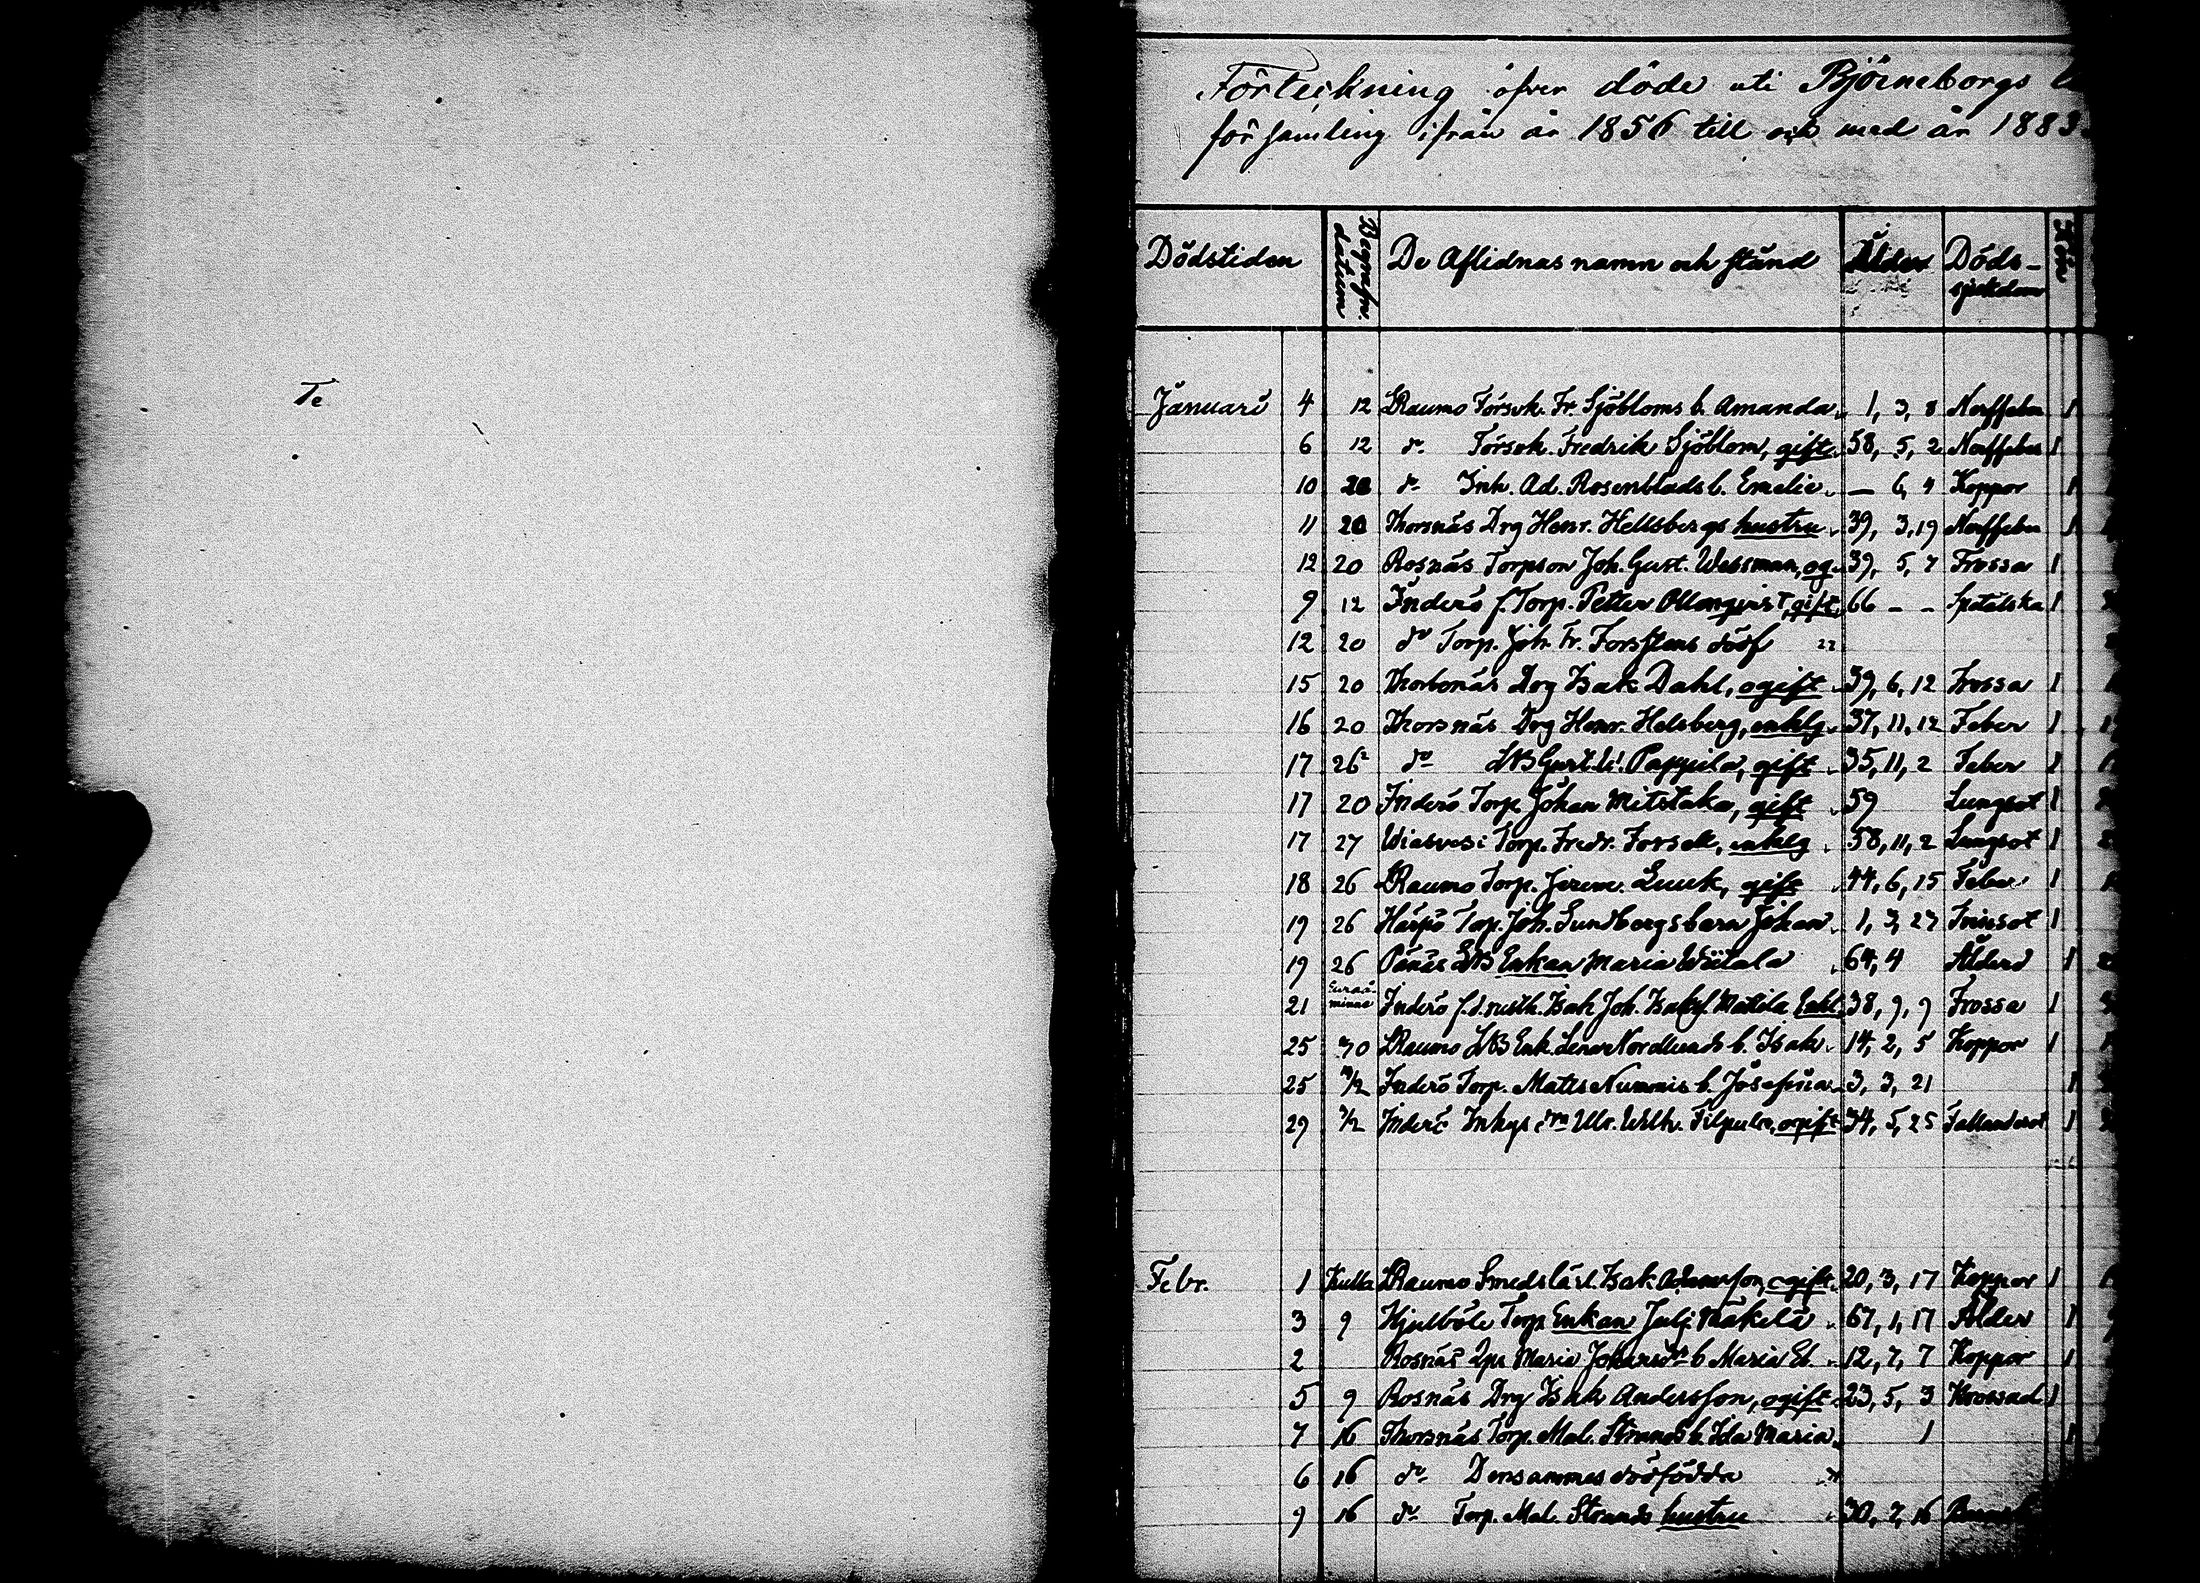 Te
Förteckning öfver döde uti Björneborgs
församling ifrån år 1856 till och med år 1883
Dödstiden Begrafn. datum De Aflidnas namn och stånd Ålder Döds-sjukdom Kön
Januari 4 12 LRaumo Försvk. Fr. Sjöbloms b. Amanda 1, 3, 8 Nerffeber 1
6 12 do Försvk. Fredrik Sjöblom, gift 58, 5, 2 Nerffeber 1
10 20 do Inh. Ad. Rosenblads b. Emelie — 6, 4 Koppor 1
11 20 Thorsnäs Drg Henr. Hellsbergs hustru 39, 3, 19 Nerffeber 1
12 20 Rosnäs Torpson Joh. Gust. Wessman, og. 39, 5, 7 Frossa 1
9 12 Inderö f. Torp. Petter Ollonqvist, gift 66 - - Spetälska 1
12 20 do Torp. Joh. Fr. Forsstens döf
15 20 Torbonäs Drg Isak Dahl, ogift 39, 6, 12 Frossa 1
16 20 Thorsnäs Drg Henr. Helsberg, enklg 37, 11, 12 Feber 1
17 26 do Gust. Pappila, gift 35, 11, 2 Feber 1
17 20 Inderö Torp. Johan Mitstaka, gift 59 Lungsot 1
17 27 Wiasvesi Torp. Fredr. Forsell, enklg 58, 11, 2 Lungsot 1
18 26 LRaumo Torp. Jerem. Luuk, gift 44, 6, 15 Feber 1
19 26 Harpö Torp. Joh. Sundbergs barn Johan 1, 3, 27 Trinsot 1
19 26 Pänäs Enkan Maria Wiitala 64, 4 Ålderd 1
21 Euraåminne Inderö Isak Joh. Mattila Enkl 38, 9, 9 Frossa 1
25 30 LRaumo Enk. Lena Nordlunds b. Isak 14, 2, 5 Koppor 1
25 /2 Inderö Torp. Matts Nummis b. Josefina 3, 3, 21 1
29 /2 Inderö Ulr. Wilh. Filpula, ogift 34, 5, 25 Fallandesot 1
Febr. 1 Kulla LRaumo Smedslärl. Isak Adamsson, ogift 20, 3, 17 Koppor 1
3 9 Kjulböle Torp Enkan Julj. Mäkelä 67, 1, 17 Ålder 1
2 Rosnäs Maria Johansdr b. Maria El. 12, 7, 7 Koppor 1
5 9 Rosnäs Drg Isak Andersson, ogift 23, 5, 3 Krossad 1
7 16 Thorsnäs Torp. Mal. Strands b. Ida Maria 1 1
6 16 do Densammes dödfödda
9 16 do Torp. Mal. Strands hustru 30, 7, 16